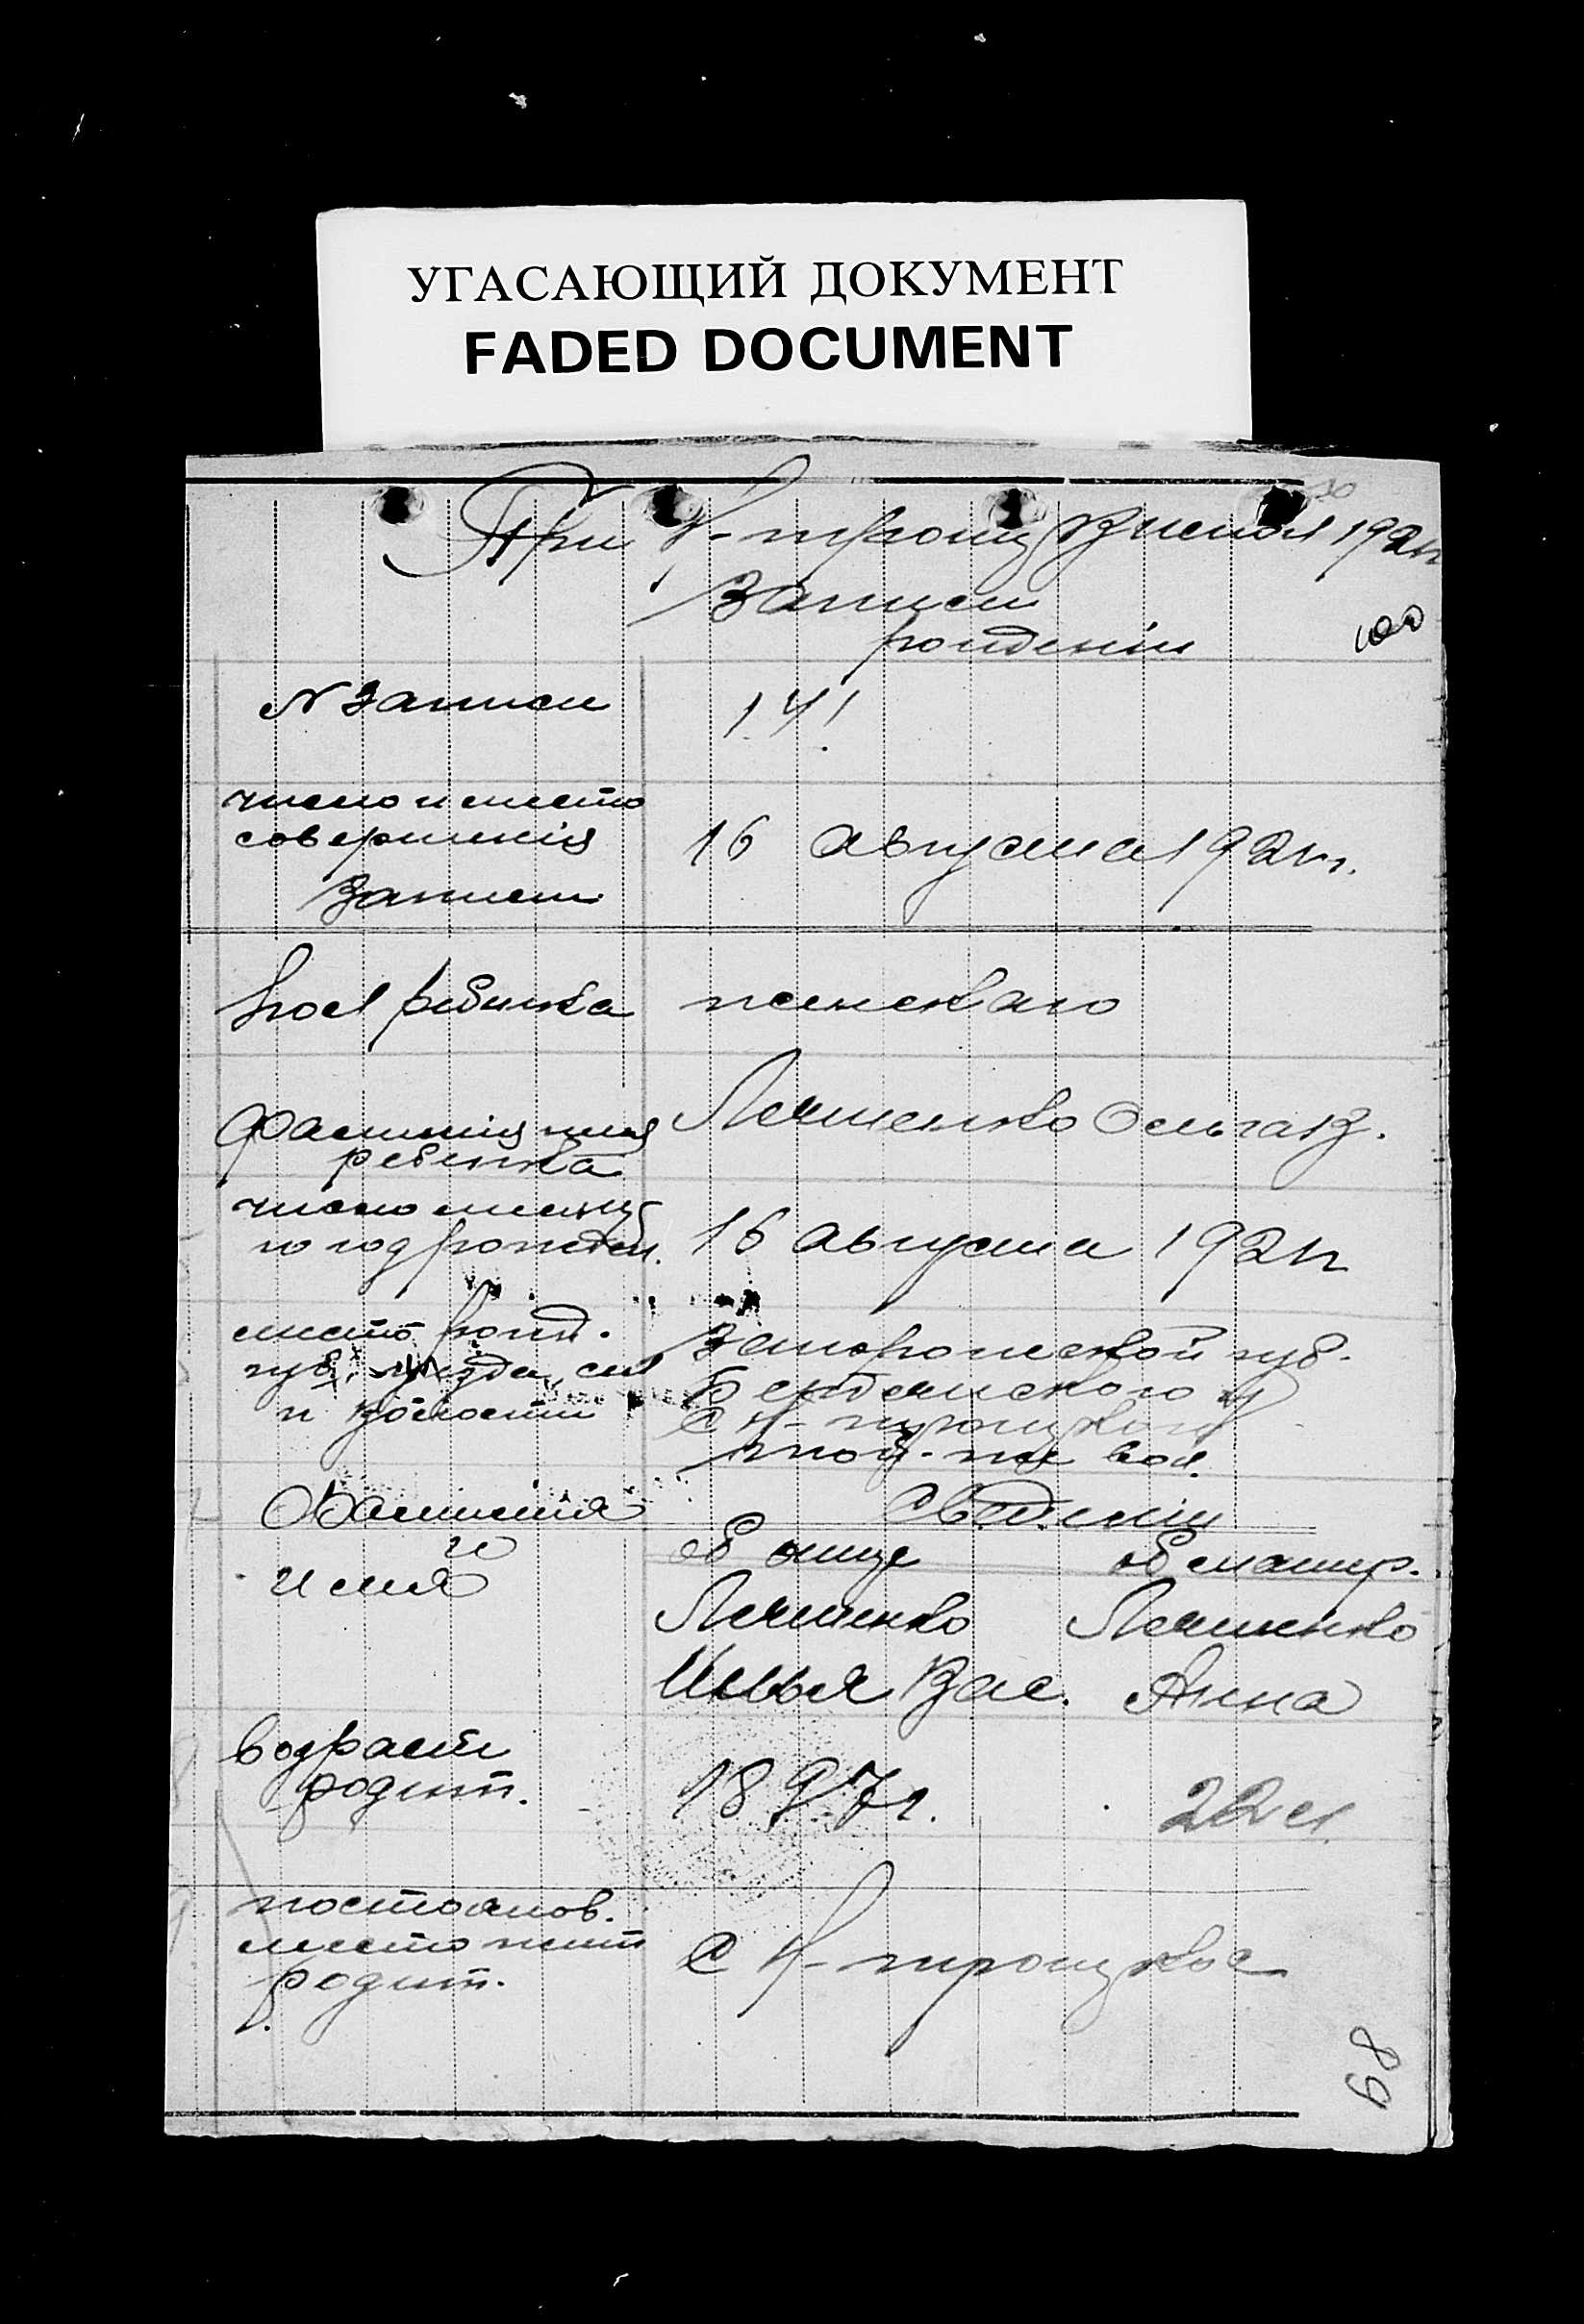 УГАСАЮЩИЙ ДОКУМЕНТ
FADED DOCUMENT
При Н-троиц 1921г
Записи
рождения
100
N Записи
141
число и место
совершенія
записи
16 августа 1921г.
пол ребенка
женскаго
Фамилия имя
ребенка
Лещенко Ольга
число месяц
и год рожден.
16 августа 1921г
место рожд.
губ., уезда, сел
и волости
Запорожской губ.
Бердянского у
с Н-троицкой
той-же вол.
Фамилия
и
имя
Сведенія
об отце
об матер.
Лещенко
Лещенко
Илья Вас.
Анна
возраст
родит.
1897г.
22 л
постоянов.
место жит
родит.
с Н-троицкое
68